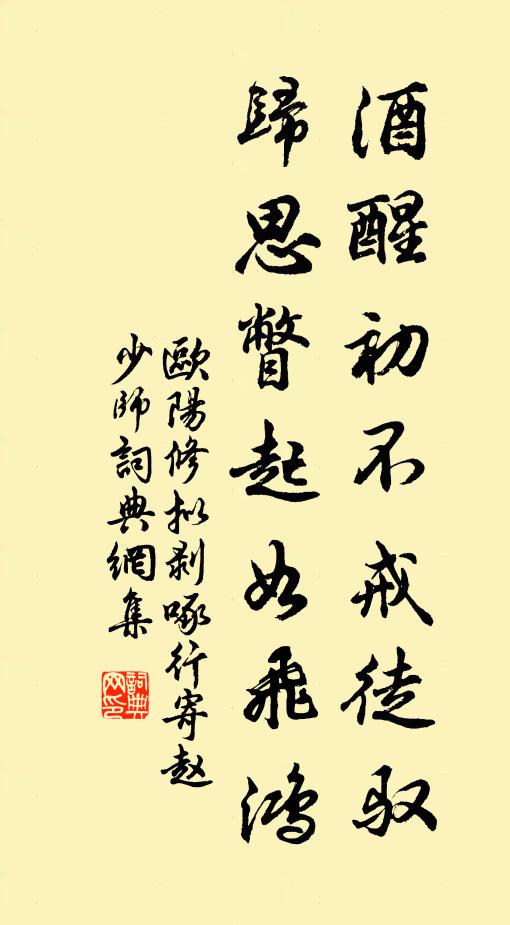 酒醒初不戒徒驭
歸思瞥起如飛鴻
歐陽修拟剥啄行寄赵
少師詞典網集
詞典网印